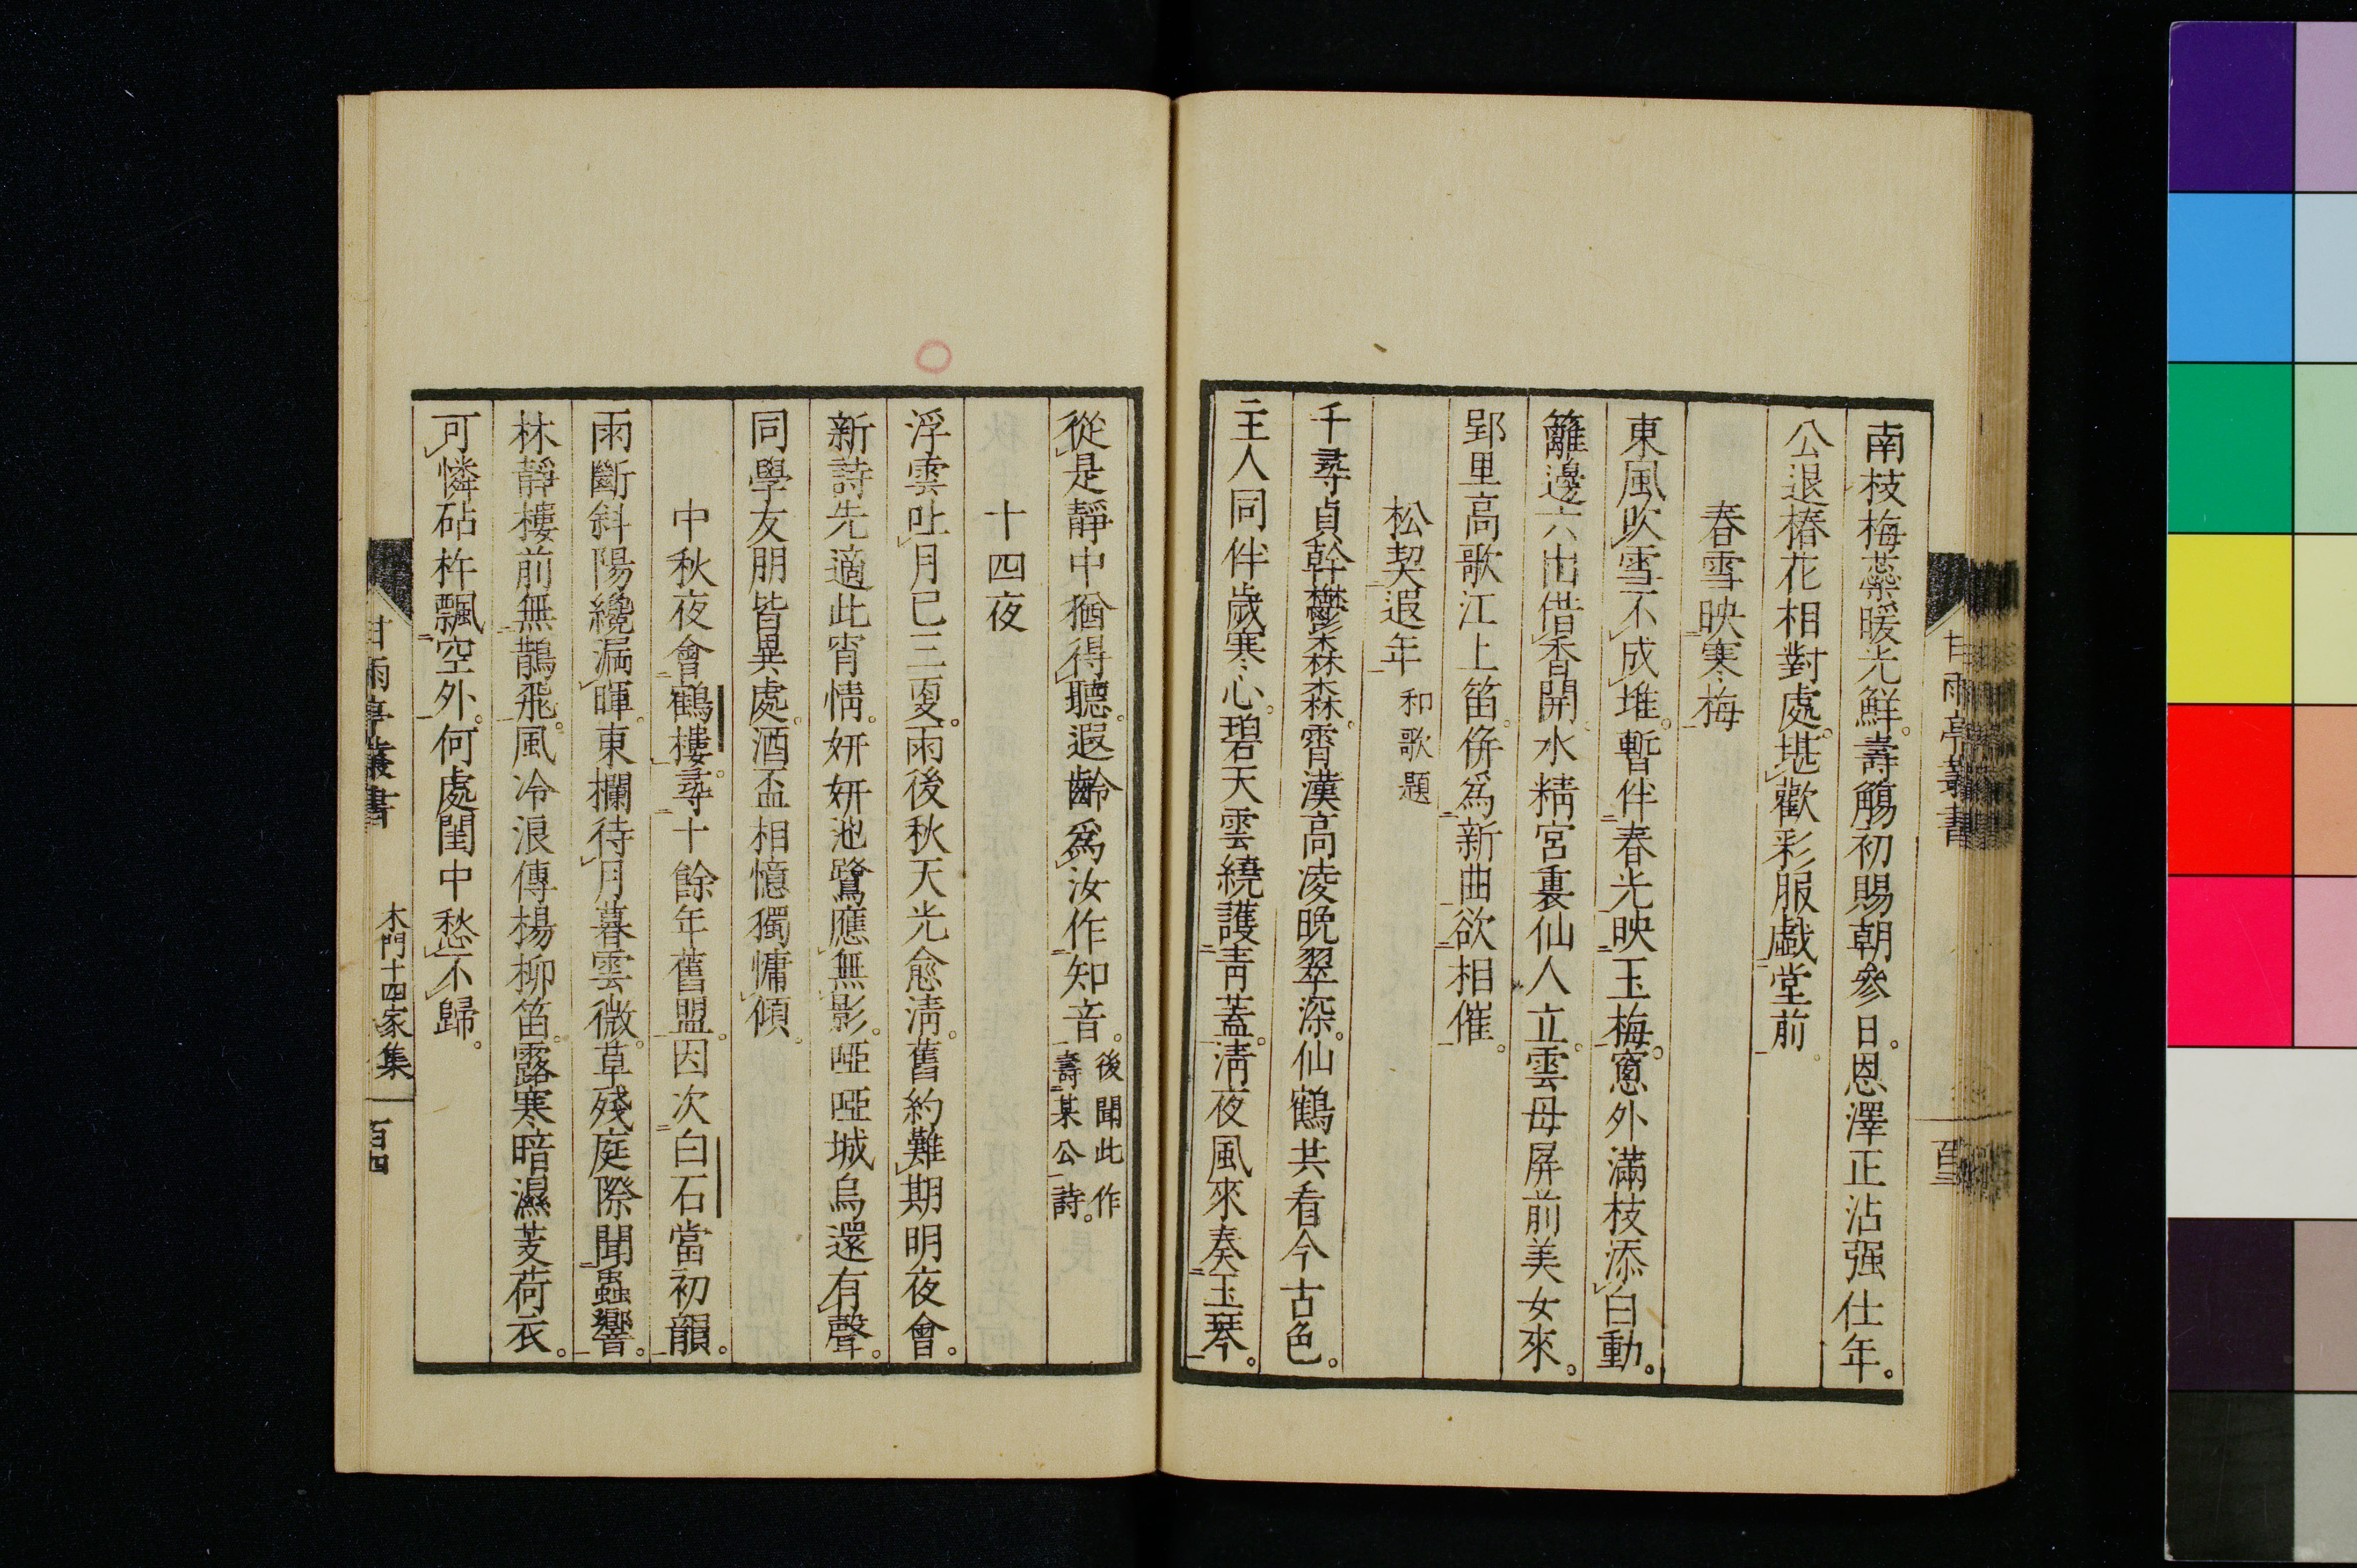 南枝梅蘂暖光鮮。壽觴初賜朝參日。恩澤正沾强仕年。
公退椿花相對處。堪歡彩服戲堂前。
春雪映寒梅
東風吹雪不成堆。暫伴春光映玉梅。窻外滿枝添白動。
籬邊六出借香開。水精宮裏仙人立。雲母屏前美女來。
郢里高歌江上笛。併爲新曲欲相催。
松契遐年 和歌題
千尋貞幹鬱森森。霄漢高凌晩翠深。仙鶴共看今古色。
主人同伴歲寒心。碧天雲繞護青蓋。淸夜風來奏玉琴。
甘雨亭叢書
從是靜中猶得聽。遐齡爲汝作知音。後聞此作壽某公詩。
十四夜
浮雲吐月已三更。雨後秋天光愈淸。舊約難期明夜會。
新詩先適此宵情。妍妍池鷺應無影。啞啞城烏還有聲。
同學友朋皆異處。酒盃相憶獨慵傾。
中秋夜會鶴樓。尋十餘年舊盟。因次白石當初韻。
雨斷斜陽纔漏暉。東欄待月暮雲微。草殘庭際聞蟲響。
林靜樓前無鵲飛。風冷浪傳楊柳笛。露寒暗濕芰荷衣。
可憐砧杵飄空外。何處閨中愁不歸。
甘雨亭叢書 木門十四家集 百四